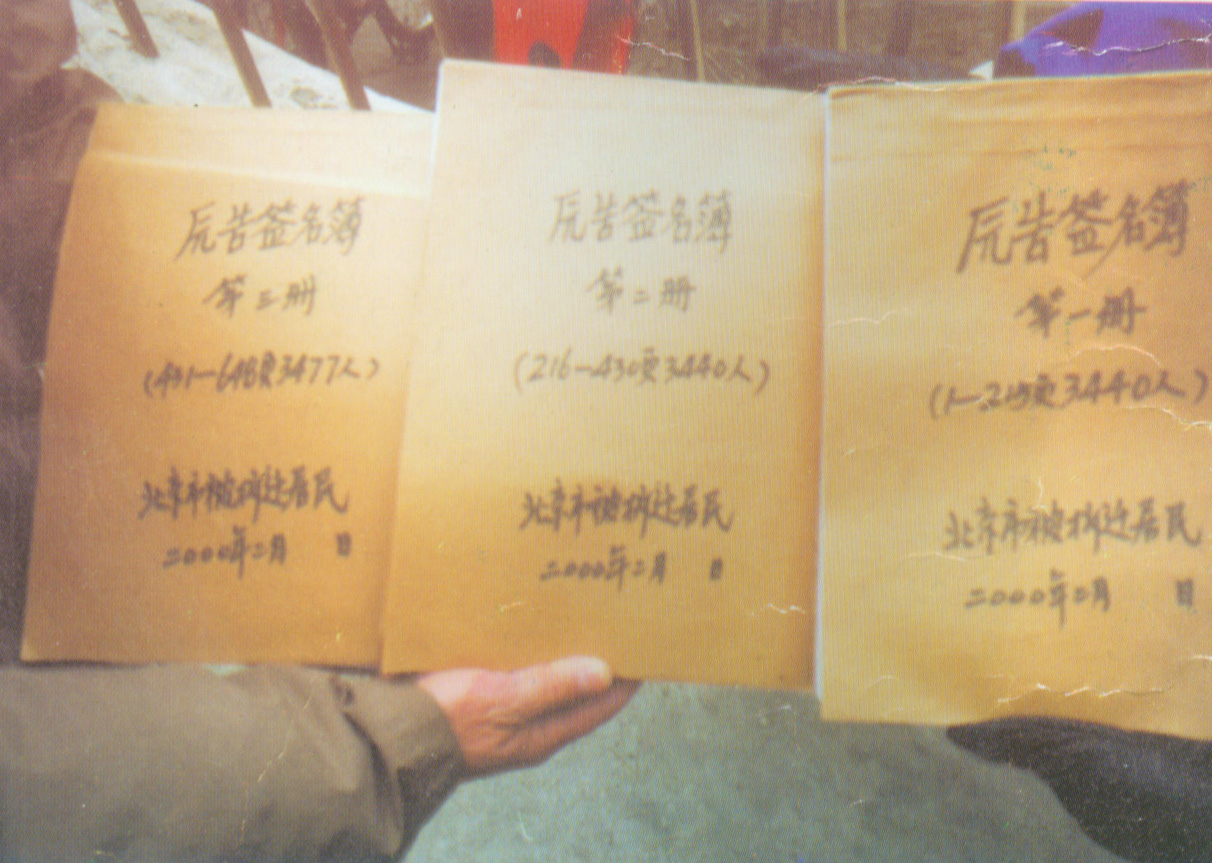 原告签名簿
第三册
(431—648页3477人)
北京市被拆迁居民
二000年二月 日
原告签名簿
第二册
(216—430页3440人)
北京市被拆迁居民
二000年二月 日
原告签名簿
第一册
(1—215页3440人)
北京市被拆迁居民
二000年二月 日